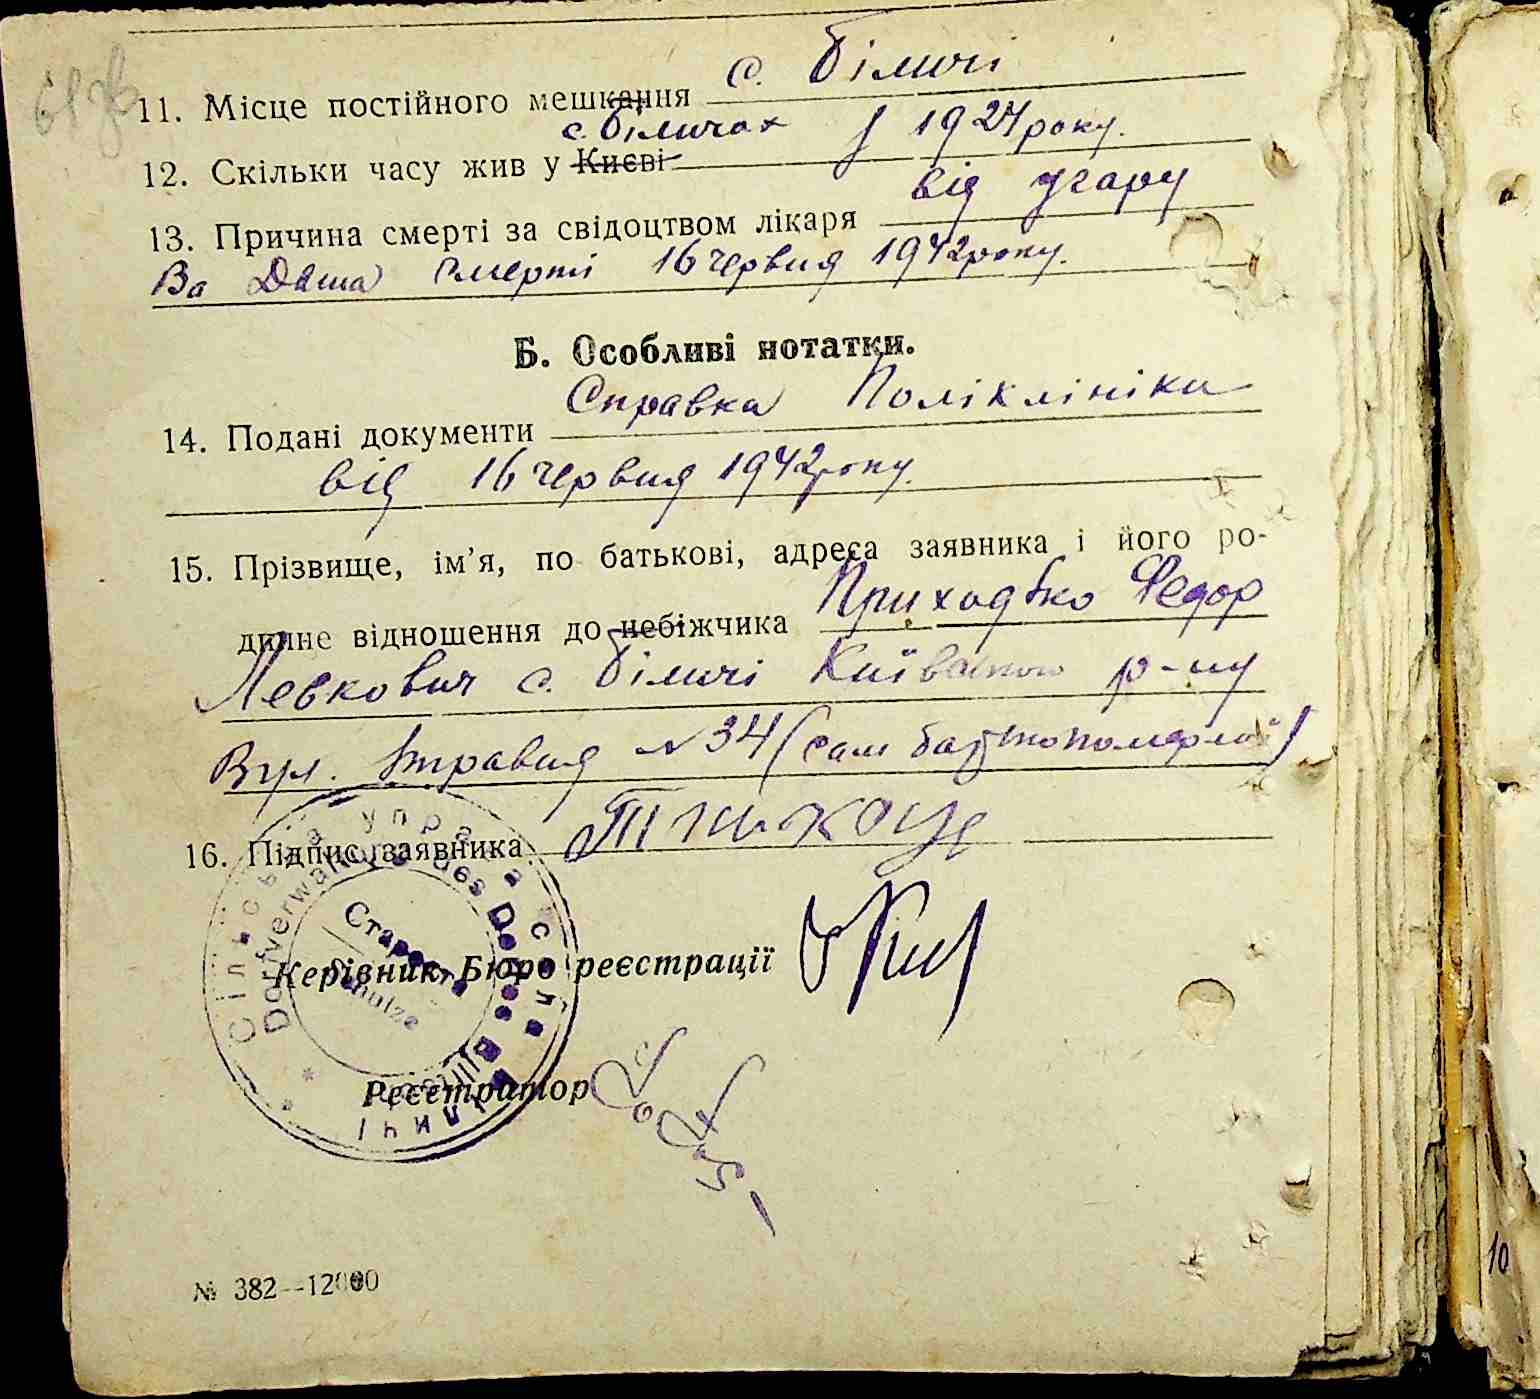 с. Біличі
11. Місце постійного мешкання
с. Біличах з 1924 року.
12. Скільки часу жив у Києві
від угару
13. Причина смерті за свідоцтвом лікаря
Дата смерті 16 червня 1942 року.
Б. Особливі нотатки.
Справка Поліклініки
14. Подані документи
від 16 червня 1942 року.
15. Прізвище, ім'я, по батькові, адреса заявника і його ро-
Приходько Федор
динне відношення до небіжчика
Левкович с. Біличі Київського р-ну
Вул. 1 травня № 34 (сам батько померлої)
16. Підпис заявника
Сільська управа села Біличі
Dorfverwaltung des Dorfes
Староста
Schulze
Керівник Бюро реєстрації
Реєстратор
№ 382—12000
10